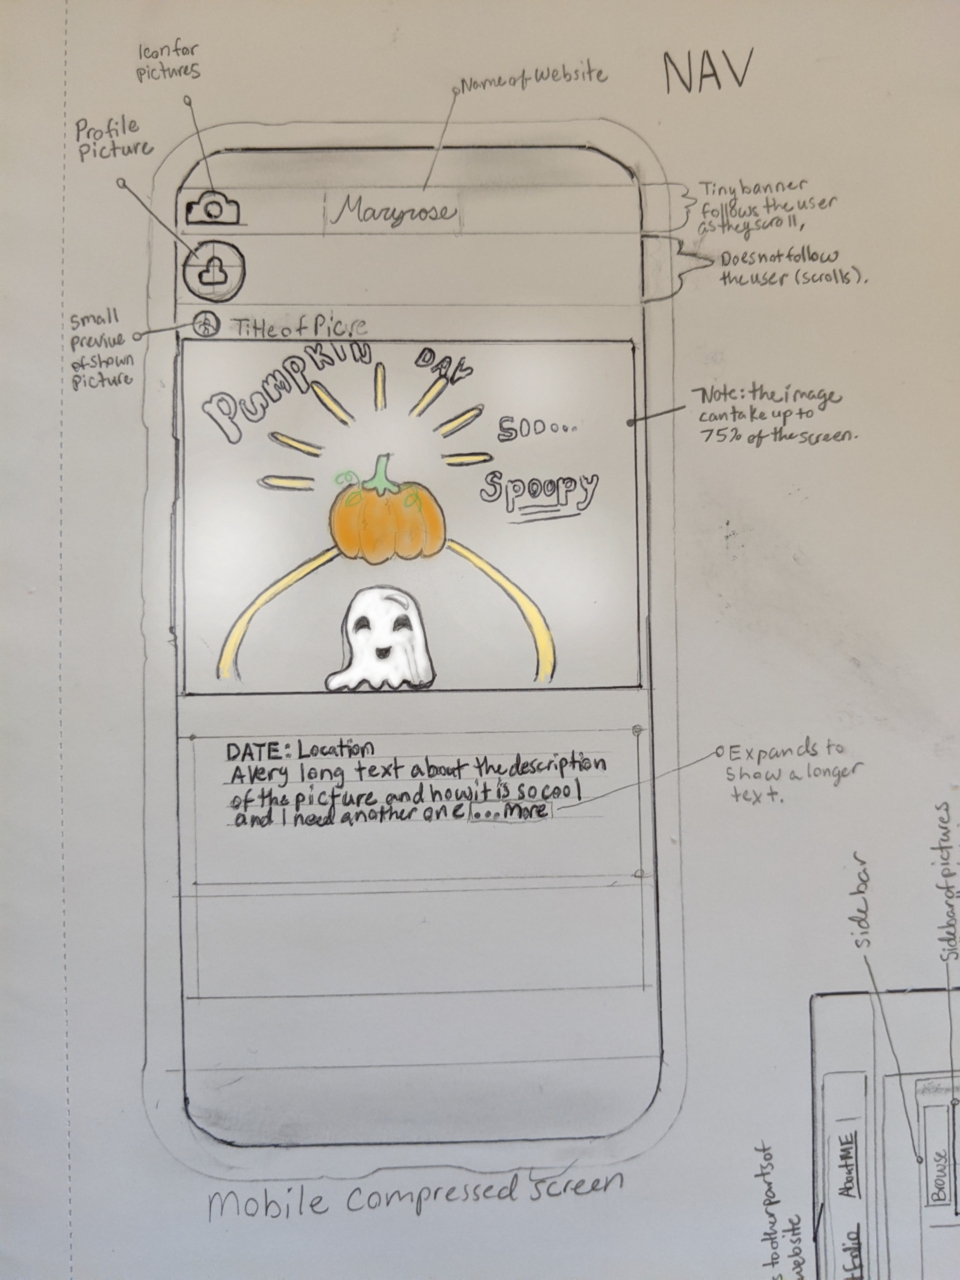 NAV
Icon for
pictures
Name of Website
Profile
Picture
Maryrose
Tiny banner
follows the user
as they scroll,
Does not follow
the user (scrolls).
Small
previue
of shown
picture
Title of Picre
PUMPKIN DAY
Soo...
Spoopy
Note: the image
can take up to
75% of the screen.
DATE: Location
A very long text about the description
of the picture and how it is so cool
and I need another one ...More
Expands to
show a longer
text.
Mobile compressed screen
sidebar
Sidebar of pictures
Browse
About ME
folio
to other parts of
website